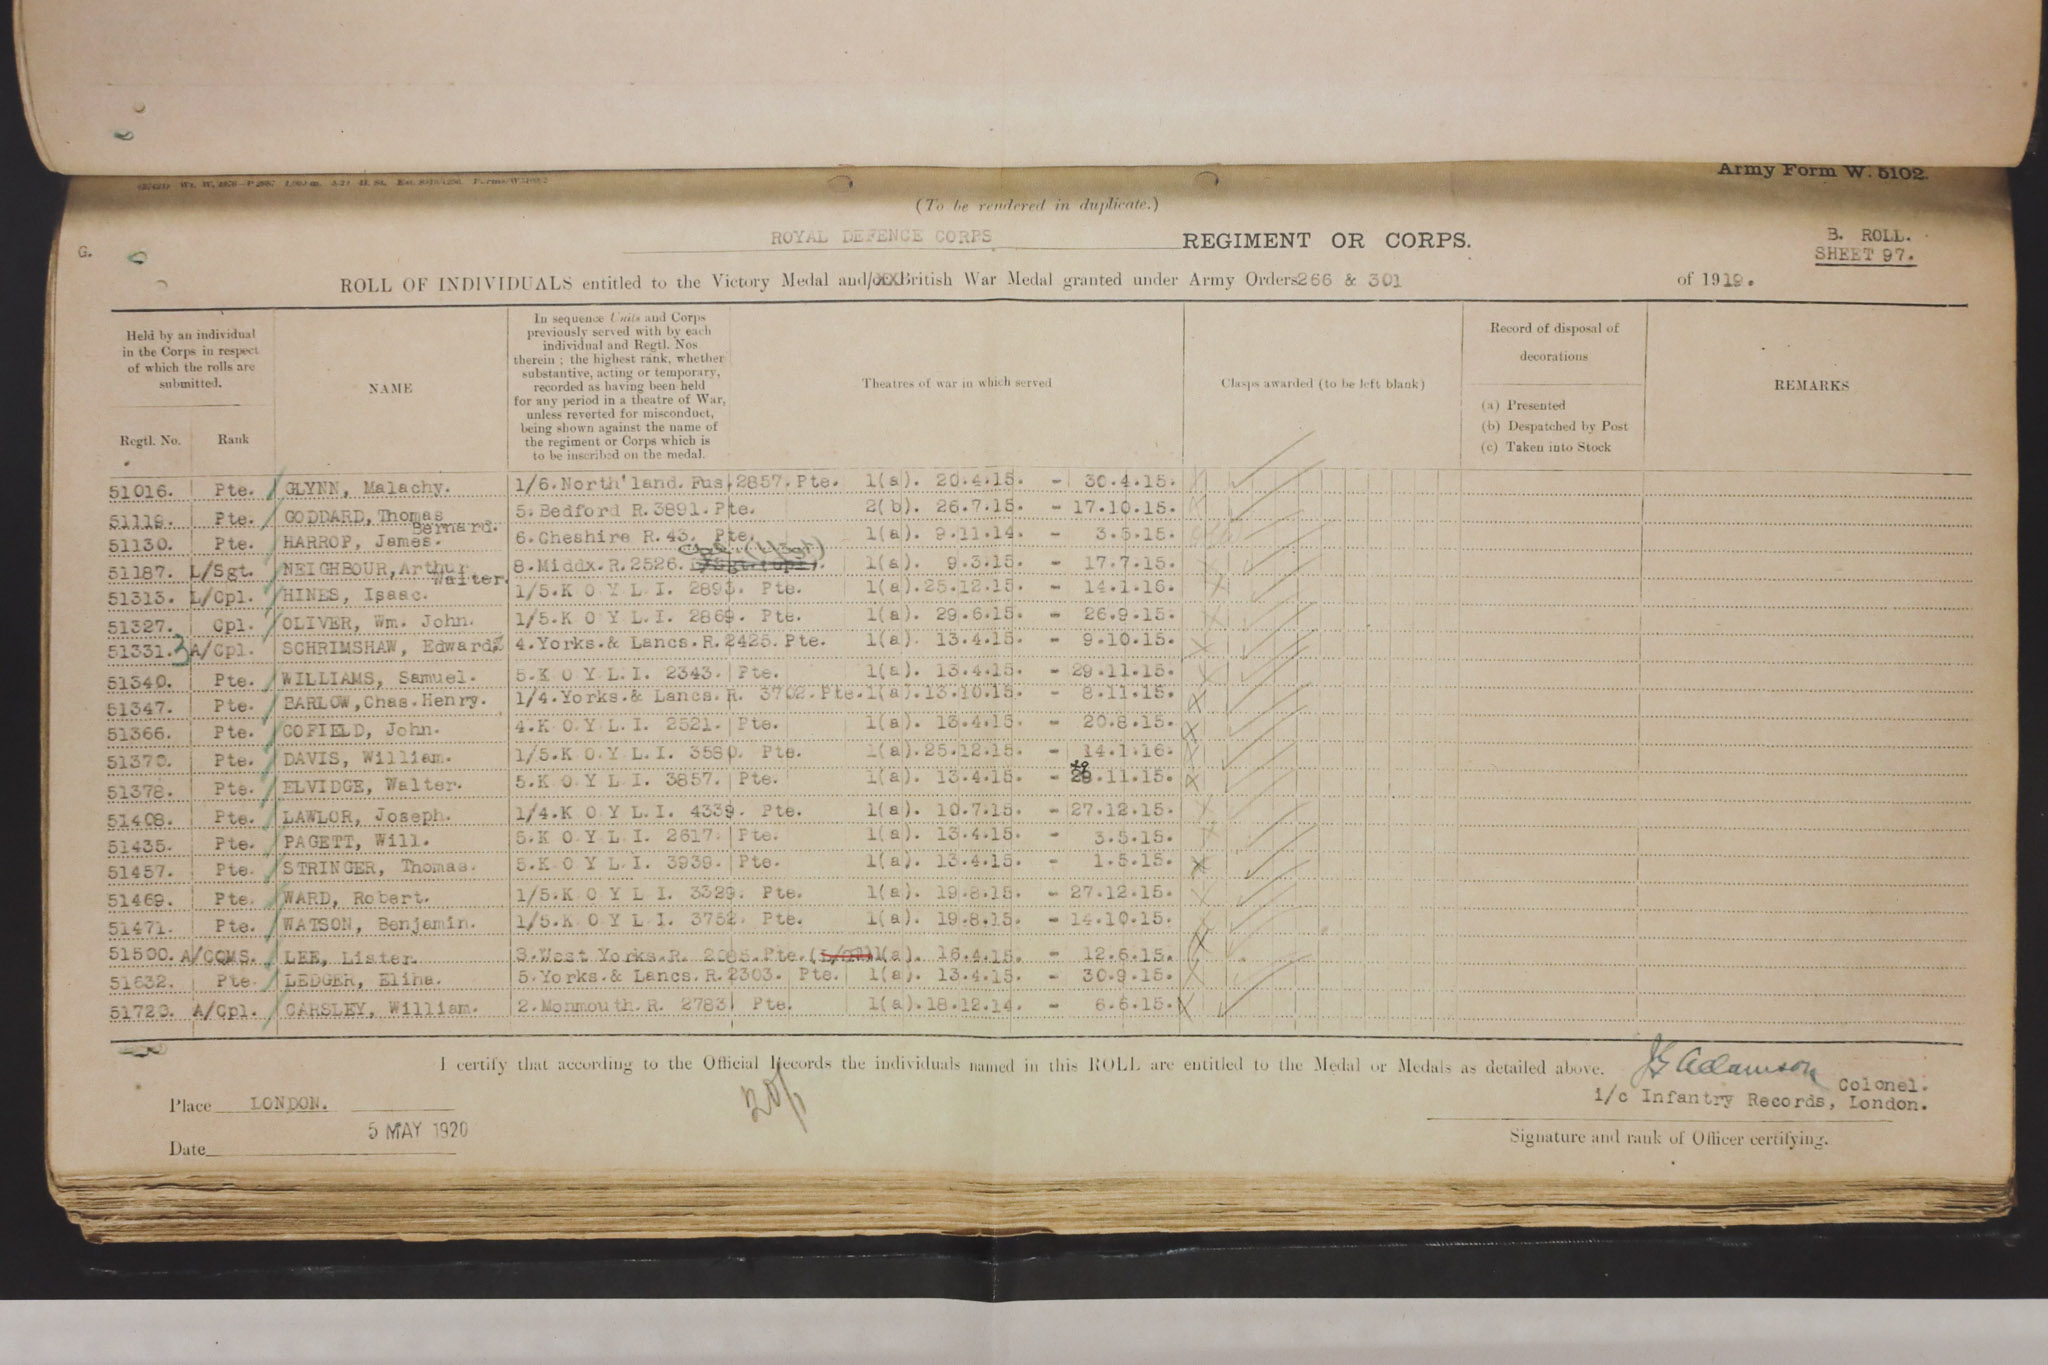 Army Form W. 5102.
(To be rendered in duplicate.)
G.
ROYAL DEFENCE CORPS REGIMENT OR CORPS.
B. ROLL.
SHEET 97.
ROLL OF INDIVIDUALS entitled to the Victory Medal and/XXBritish War Medal granted under Army Orders 266 & 301 of 1919.
Held by an individual
in the Corps in respect
of which the rolls are
submitted.
Regtl. No. Rank
NAME
In sequence Units and Corps
previously served with by each
individual and Regtl. Nos
therein ; the highest rank, whether
substantive, acting or temporary,
recorded as having been held
for any period in a theatre of War,
unless reverted for misconduct,
being shown against the name of
the regiment or Corps which is
to be inscribed on the medal.
Theatres of war in which served
Clasps awarded (to be left blank)
Record of disposal of
decorations
(a) Presented
(b) Despatched by Post
(c) Taken into Stock
REMARKS
51016. Pte. GLYNN, Malachy. 1/6.North'land. Fus.2857.Pte. 1(a). 20.4.15. - 30.4.15.
51119. Pte. GODDARD,Thomas Bernard. 5.Bedford R.3891.Pte. 2(b). 26.7.15. - 17.10.15.
51130. Pte. HARROP, James. 6.Cheshire R.43. Pte. 1(a). 9.11.14. - 3.5.15.
51187. L/Sgt. NEIGHBOUR,Arthur Walter. 8.Middx.R.2526. Cpl. (L/Sgt) 1(a). 9.3.15. - 17.7.15.
51313. L/Cpl. HINES, Isaac. 1/5.K O Y L I. 2893. Pte. 1(a).25.12.15. - 14.1.16.
51327. Cpl. OLIVER, Wm. John. 1/5.K O Y L I. 2869. Pte. 1(a). 29.6.15. - 26.9.15.
51331. 3 A/Cpl. SCHRIMSHAW, Edward. 4.Yorks.& Lancs.R.2425.Pte. 1(a). 13.4.15. - 9.10.15.
51340. Pte. WILLIAMS, Samuel. 5.K O Y L I. 2343. Pte. 1(a). 13.4.15. - 29.11.15.
51347. Pte. BARLOW,Chas.Henry. 1/4.Yorks.& Lancs.R. 3702.Pte.1(a).13.10.15. - 8.11.15.
51366. Pte. COFIELD, John. 4.K O Y L I. 2521. Pte. 1(a). 13.4.15. - 20.8.15.
51370. Pte. DAVIS, William. 1/5.K O Y L I. 3580. Pte. 1(a).25.12.15. - 14.1.16.
51378. Pte. ELVIDGE, Walter. 5.K O Y L I. 3857. Pte. 1(a). 13.4.15. - .11.15.
51408. Pte. LAWLOR, Joseph. 1/4.K O Y L I. 4339. Pte. 1(a). 10.7.15. - 27.12.15.
51435. Pte. PAGETT, Will. 5.K O Y L I. 2617. Pte. 1(a). 13.4.15. - 3.5.15.
51457. Pte. STRINGER, Thomas. 5.K O Y L I. 3939. Pte. 1(a). 13.4.15. - 1.5.15.
51469. Pte. WARD, Robert. 1/5.K O Y L I. 3329. Pte. 1(a). 19.8.15. - 27.12.15.
51471. Pte. WATSON, Benjamin. 1/5.K O Y L I. 3752. Pte. 1(a). 19.8.15. - 14.10.15.
51500. A/CQMS. LEE, Lister. 3.West Yorks.R. Pte. 1(a). 16.4.15. - 12.6.15.
51632. Pte. LEDGER, Eliha. 5.Yorks.& Lancs.R.2303. Pte. 1(a). 13.4.15. - 30.9.15.
51720. A/Cpl. CARSLEY, William. 2.Monmouth.R. 2783. Pte. 1(a).18.12.14. - 6.6.15.
I certify that according to the Official Records the individuals named in this ROLL are entitled to the Medal or Medals as detailed above.
Adamson Colonel.
i/c Infantry Records, London.
Place LONDON.
Date 5 MAY 1920
Signature and rank of Officer certifying.